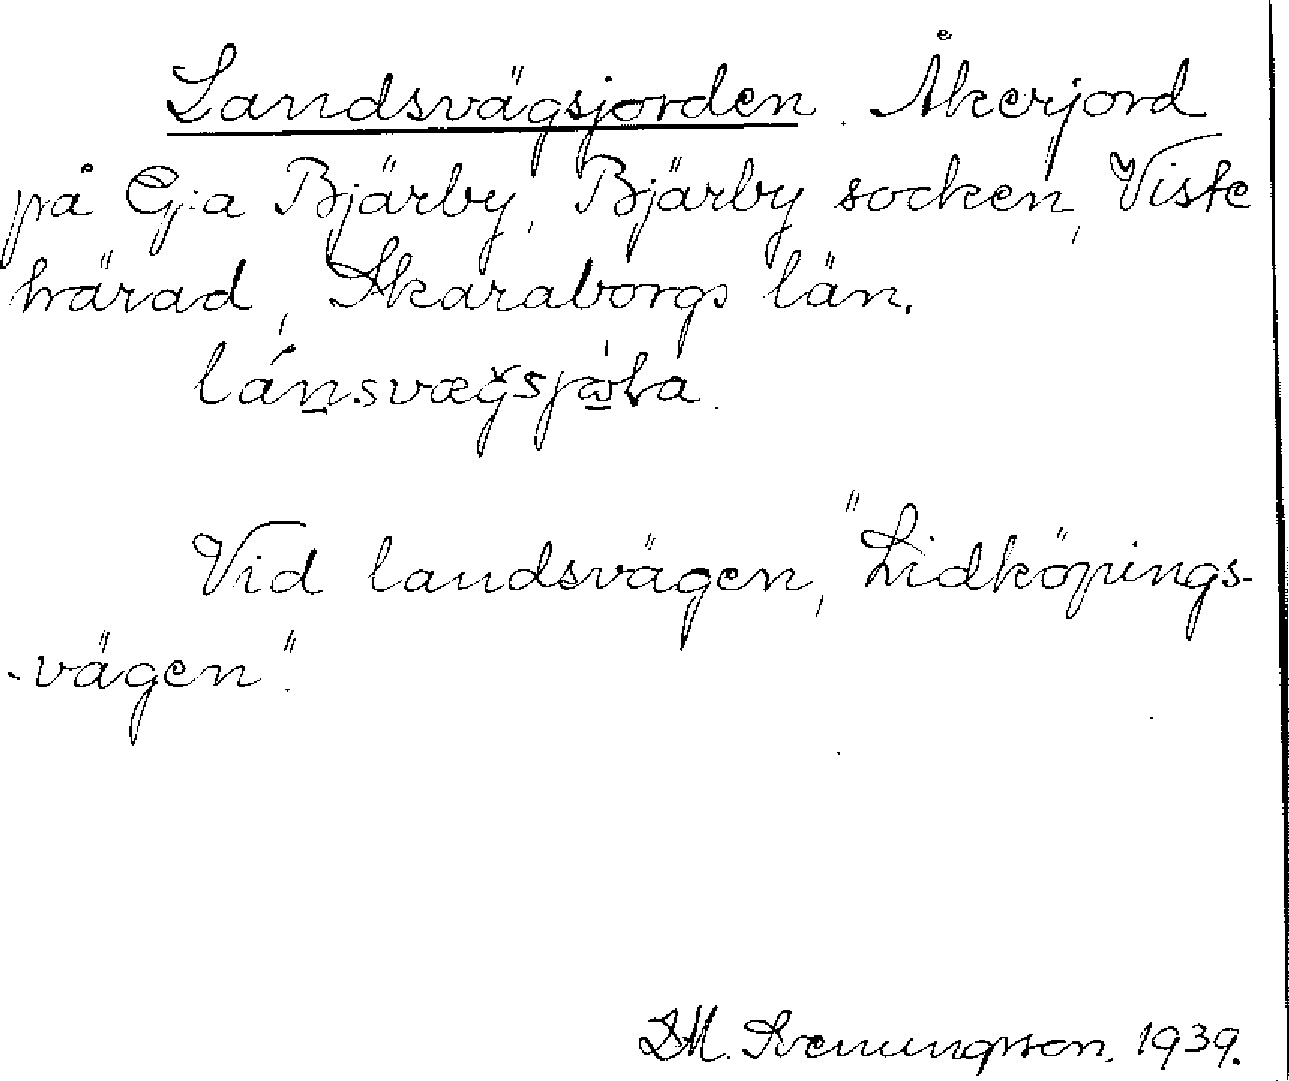 Landsvägsjorden. Åkerjord
på G:a Bjärby, Bjärby socken, Viste
härad, Skaraborgs län.
Vid landsvägen, "Lidköpings-
-vägen".
1939.